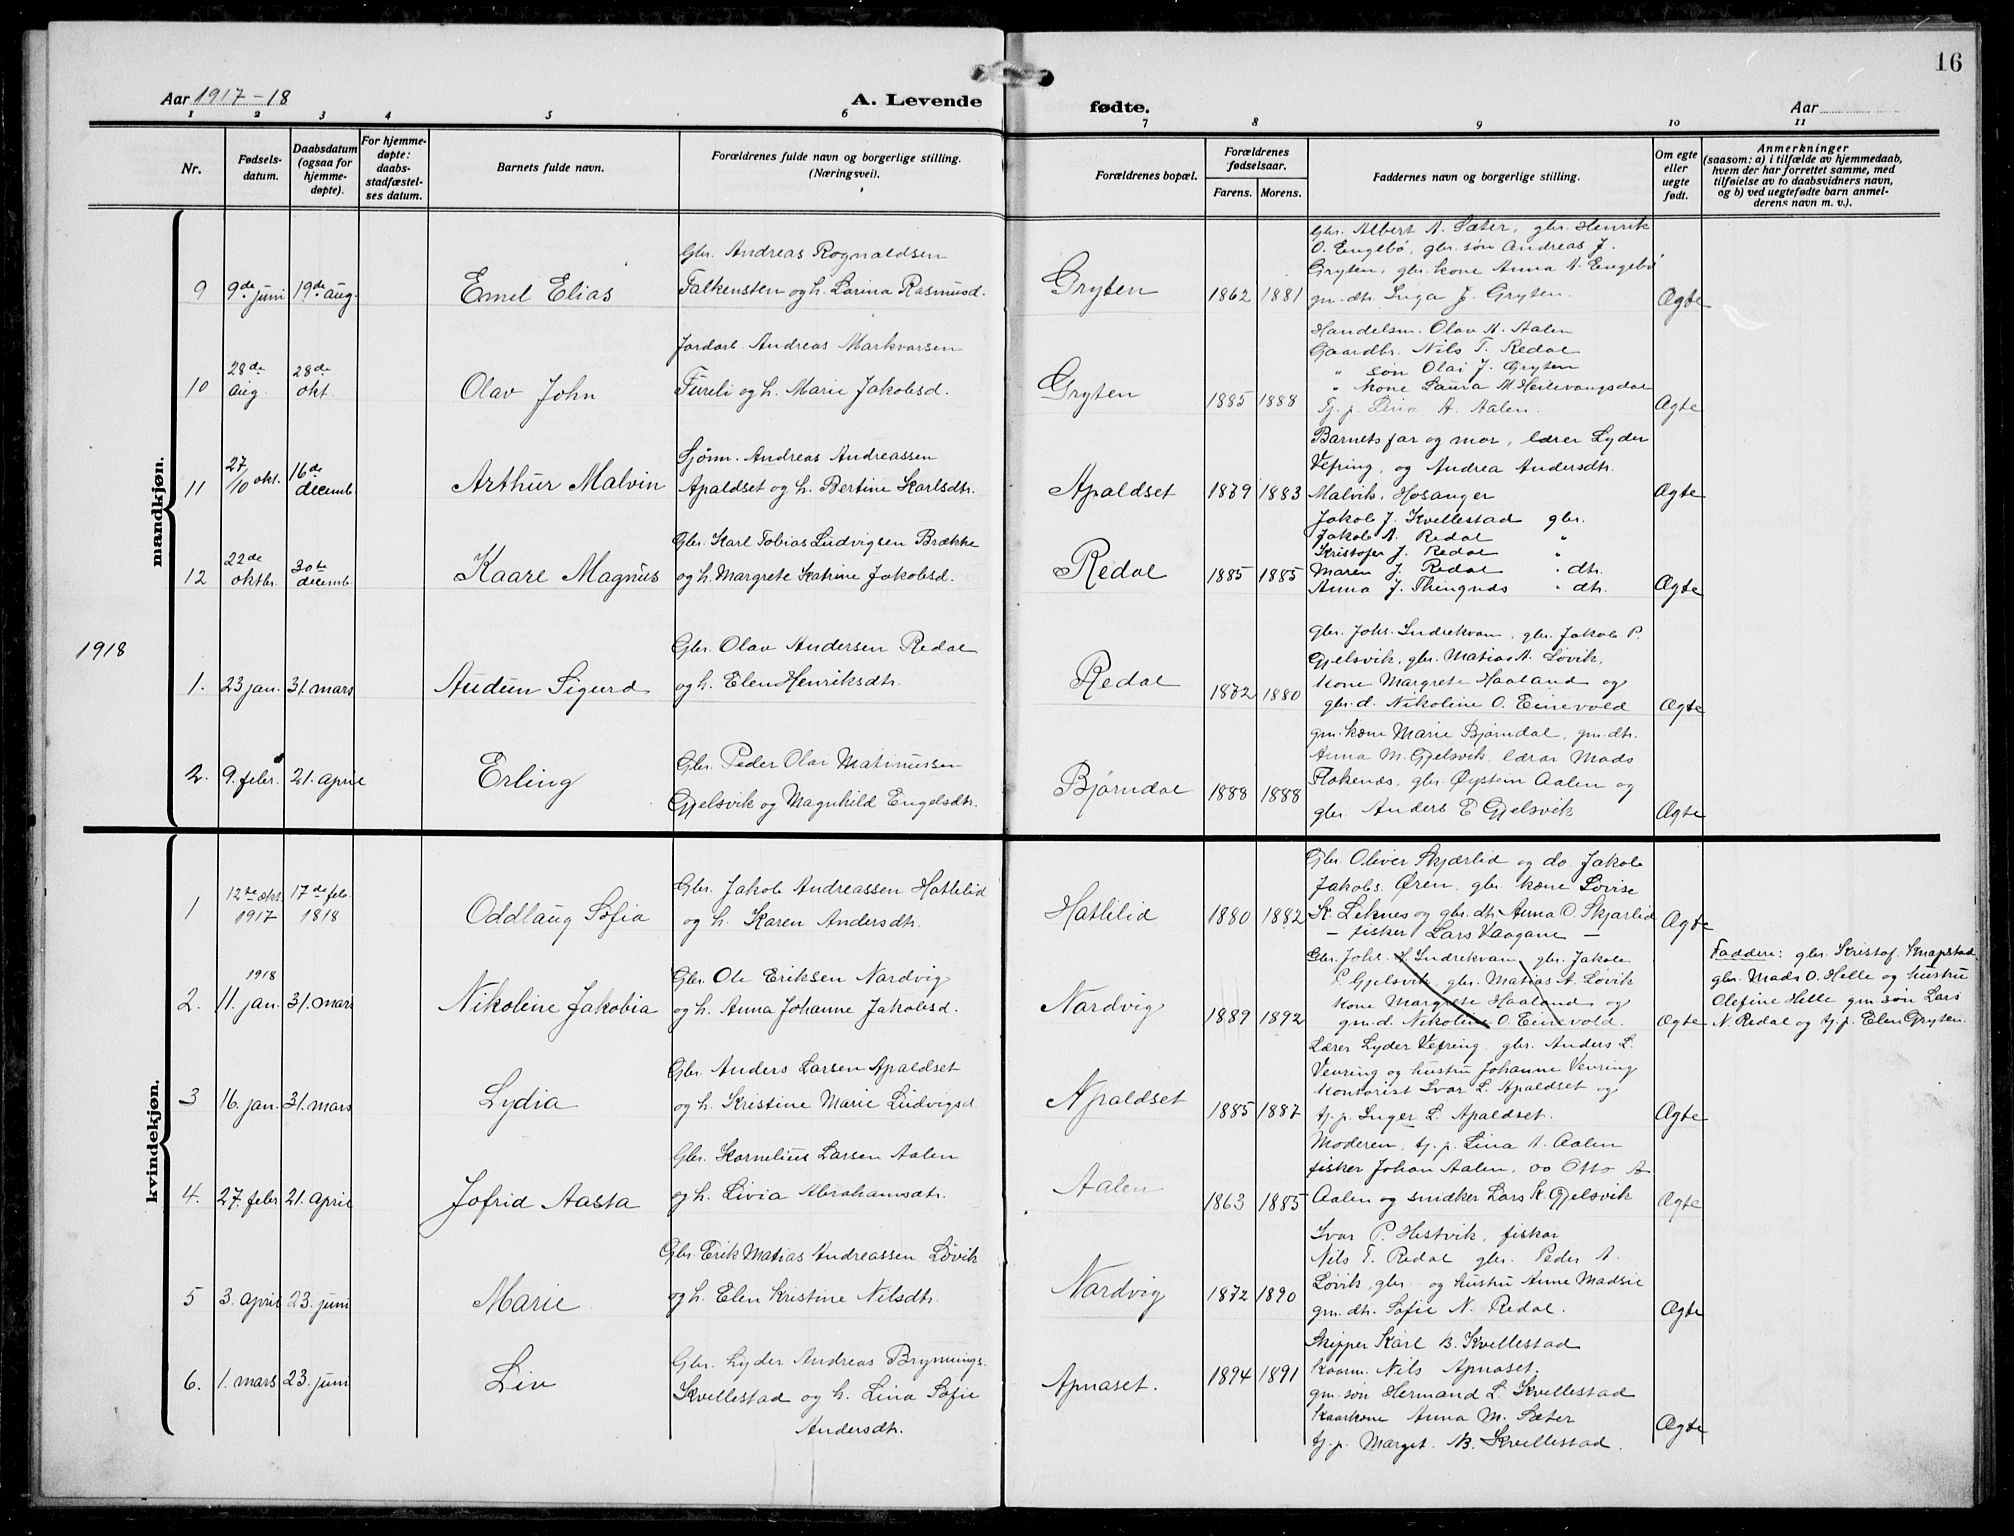 16
Aar 1917-18
A. Levende
fødte.
Aar
1 2 3 4 5 6 7 8 9 10 11
Nr.
Fødsels-
datum.
Daabsdatum
(ogsaa for
hjemme-
døpte).
For hjemme-
døpte:
daabs-
stadfæstel-
ses datum.
Barnets fulde navn.
Forældrenes fulde navn og borgerlige stilling.
(Næringsvei).
Forældrenes bopæl.
Forældrenes
fødselsaar.
Farens. Morens.
Faddernes navn og borgerlige stilling.
Om egte
eller
uegte
født.
Anmerkninger
(saasom: a) i tilfælde av hjemmedaab,
hvem der har forrettet samme, med
tilføielse av to daabsvidners navn,
og b) ved uegtefødte barn anmel-
derens navn m. v.).
mandkjøn.
9
9de juni
19de aug.
Emel Elias
Gbr. Andreas Rognaldsen
Falkensten og h. Larina Rasmusd.
Gryten
1862 1881
Gbr. Albert A. Sæter, gbr. Henrik
O. Engebø, gbr. søn Andreas J.
Gryten, gbr. kone Anna A. Engebø
gm. dtr. Inga J. Gryten.
Ægte
10
28de
aug.
28de
okt.
Olav John
Jordarb. Andreas Markvarsen
Fureli og h. Marie Jakobsd.
Gryten
1885 1888
Handelsm. Olav A. Aalen
Gaardbr. Nils T. Redal
" søn Olai J. Gryten
" kone Laura M. Heilevangsdal
Tj. p. Lina A. Aalen.
Ægte
11
27/10 okt.
16de
decemb.
Arthur Malvin
Sjøm. Andreas Andreassen
Apaldset og h. Bertine Karlsdtr.
Apaldset
1879 1883
Barnets far og mor, lærer Lyder
Vefring, og Andrea Andersdtr.
Malvik, Hosanger
Ægte
12
22de
oktbr.
30te
decemb.
Kaare Magnus
Gbr. Karl Tobias Ludvigsen Brække
og h. Margrete Katrine Jakobsd.
Redal
1885 1885
Jakob J. Kvellestad gbr.
Jakob A. Redal "
Kristofer J. Redal "
Maren J. Redal " dtr.
Anna J. Thingnes " dtr.
Ægte
1918
1.
23 jan.
31. mars
Audun Sigurd
Gbr. Olav Andersen Redal
og h. Elen Henriksdtr.
Redal
1872 1880
gbr. Johs. Indrekvam, gbr. Jakob P.
Gjelsvik, gbr. Matias A. Løvik,
kone Margrete Haaland og
gbr. d. Nikoline O. Einevold
Ægte
2.
9. febr.
21. april
Erling
Gbr. Peder Olai Matinussen
Gjelsvik og Magnhild Engelsdtr.
Bjørndal
1888 1888
gm. kone Marie Bjørndal, gm. dtr.
Anna M. Gjelsvik, lærar Mads
Flokenes, gbr. Øystein Aalen og
gbr. Anders E Gjelsvik
Ægte
kvindekjøn.
1
12te okt.
1917
17de feb.
1818
Oddlaug Sofia
Gbr. Jakob Andreassen Hatlelid
og h. Karen Andersdtr.
Hatlelid
1880 1882
Gbr. Oliver Skjærlid og do. Jakob
Jakobs. Øren, gbr. kone Lovise
K. Leknes og gbr. dtr. Anna O. Skjarlid
– fisker Lars Vaagane –
Ægte
2.
1918
11. jan.
31. mars
Nikoline Jakobia
Gbr. Ole Eriksen Nardvig
og h. Anna Johanne Jakobsd.
Nardvig
1889 1892
Gbr. Johs. H Indrekvam, gbr. Jakob
P. Gjelsvik gbr. Matias A. Løvik
kone Margrete Haaland og
gm. d. Nikoline O. Einevold.
Ægte
Faddere: gbr. Kristof. Knapstad
gbr. Mads O. Helle og hustru
Olefine Helle gm. søn Lars
N. Redal og tj. p. Elen Gryten.
3
16. jan.
31. mars
Lydia
Gbr. Anders Larsen Apaldset
og h. Kristine Marie Ludvigsd.
Apaldset
1885 1887
Lærer Lyder Vefring, gbr. Anders L.
Vevring og hustru Johanne Vevring
kontorist Ivar L. Apaldset og
tj. p. Inger L. Apaldset.
Ægte
4.
27. febr
21. april
Jofrid Aasta
Gbr. Kornelius Larsen Aalen
og h. Livia Abrahamsdtr.
Aalen
1863 1885
Moderen, tj. p. Lina A. Aalen
fisker Johan Aalen, do Otto A.
Aalen og snidker Lars K. Gjelsvik
Ægte
5
3. april
23. juni
Marie
Gbr. Erik Matias Andreassen Løvik
og h. Elen Kristine Nilsdtr.
Nardvig
1872 1890
Ivar P. Hestvik, fiskar
Nils T. Redal gbr. Peder A.
Løvik, gbr. og hustru Anne Madsie
gm. dtr. Sofie N. Redal.
Ægte
6.
1. mars
23. juni
Liv
Gbr. Lyder Andreas Brynnings.
Kvellestad og h. Lina Sofie
Andersdtr.
Apnaset.
1894 1891
Skipper Karl B. Kvellestad
Kaarm. Nils Apnaset.
gm. søn Hermand L. Kvellestad
Kaarkone Anna M. Sæter
tj. p. Marget. B. Kvellestad.
Ægte